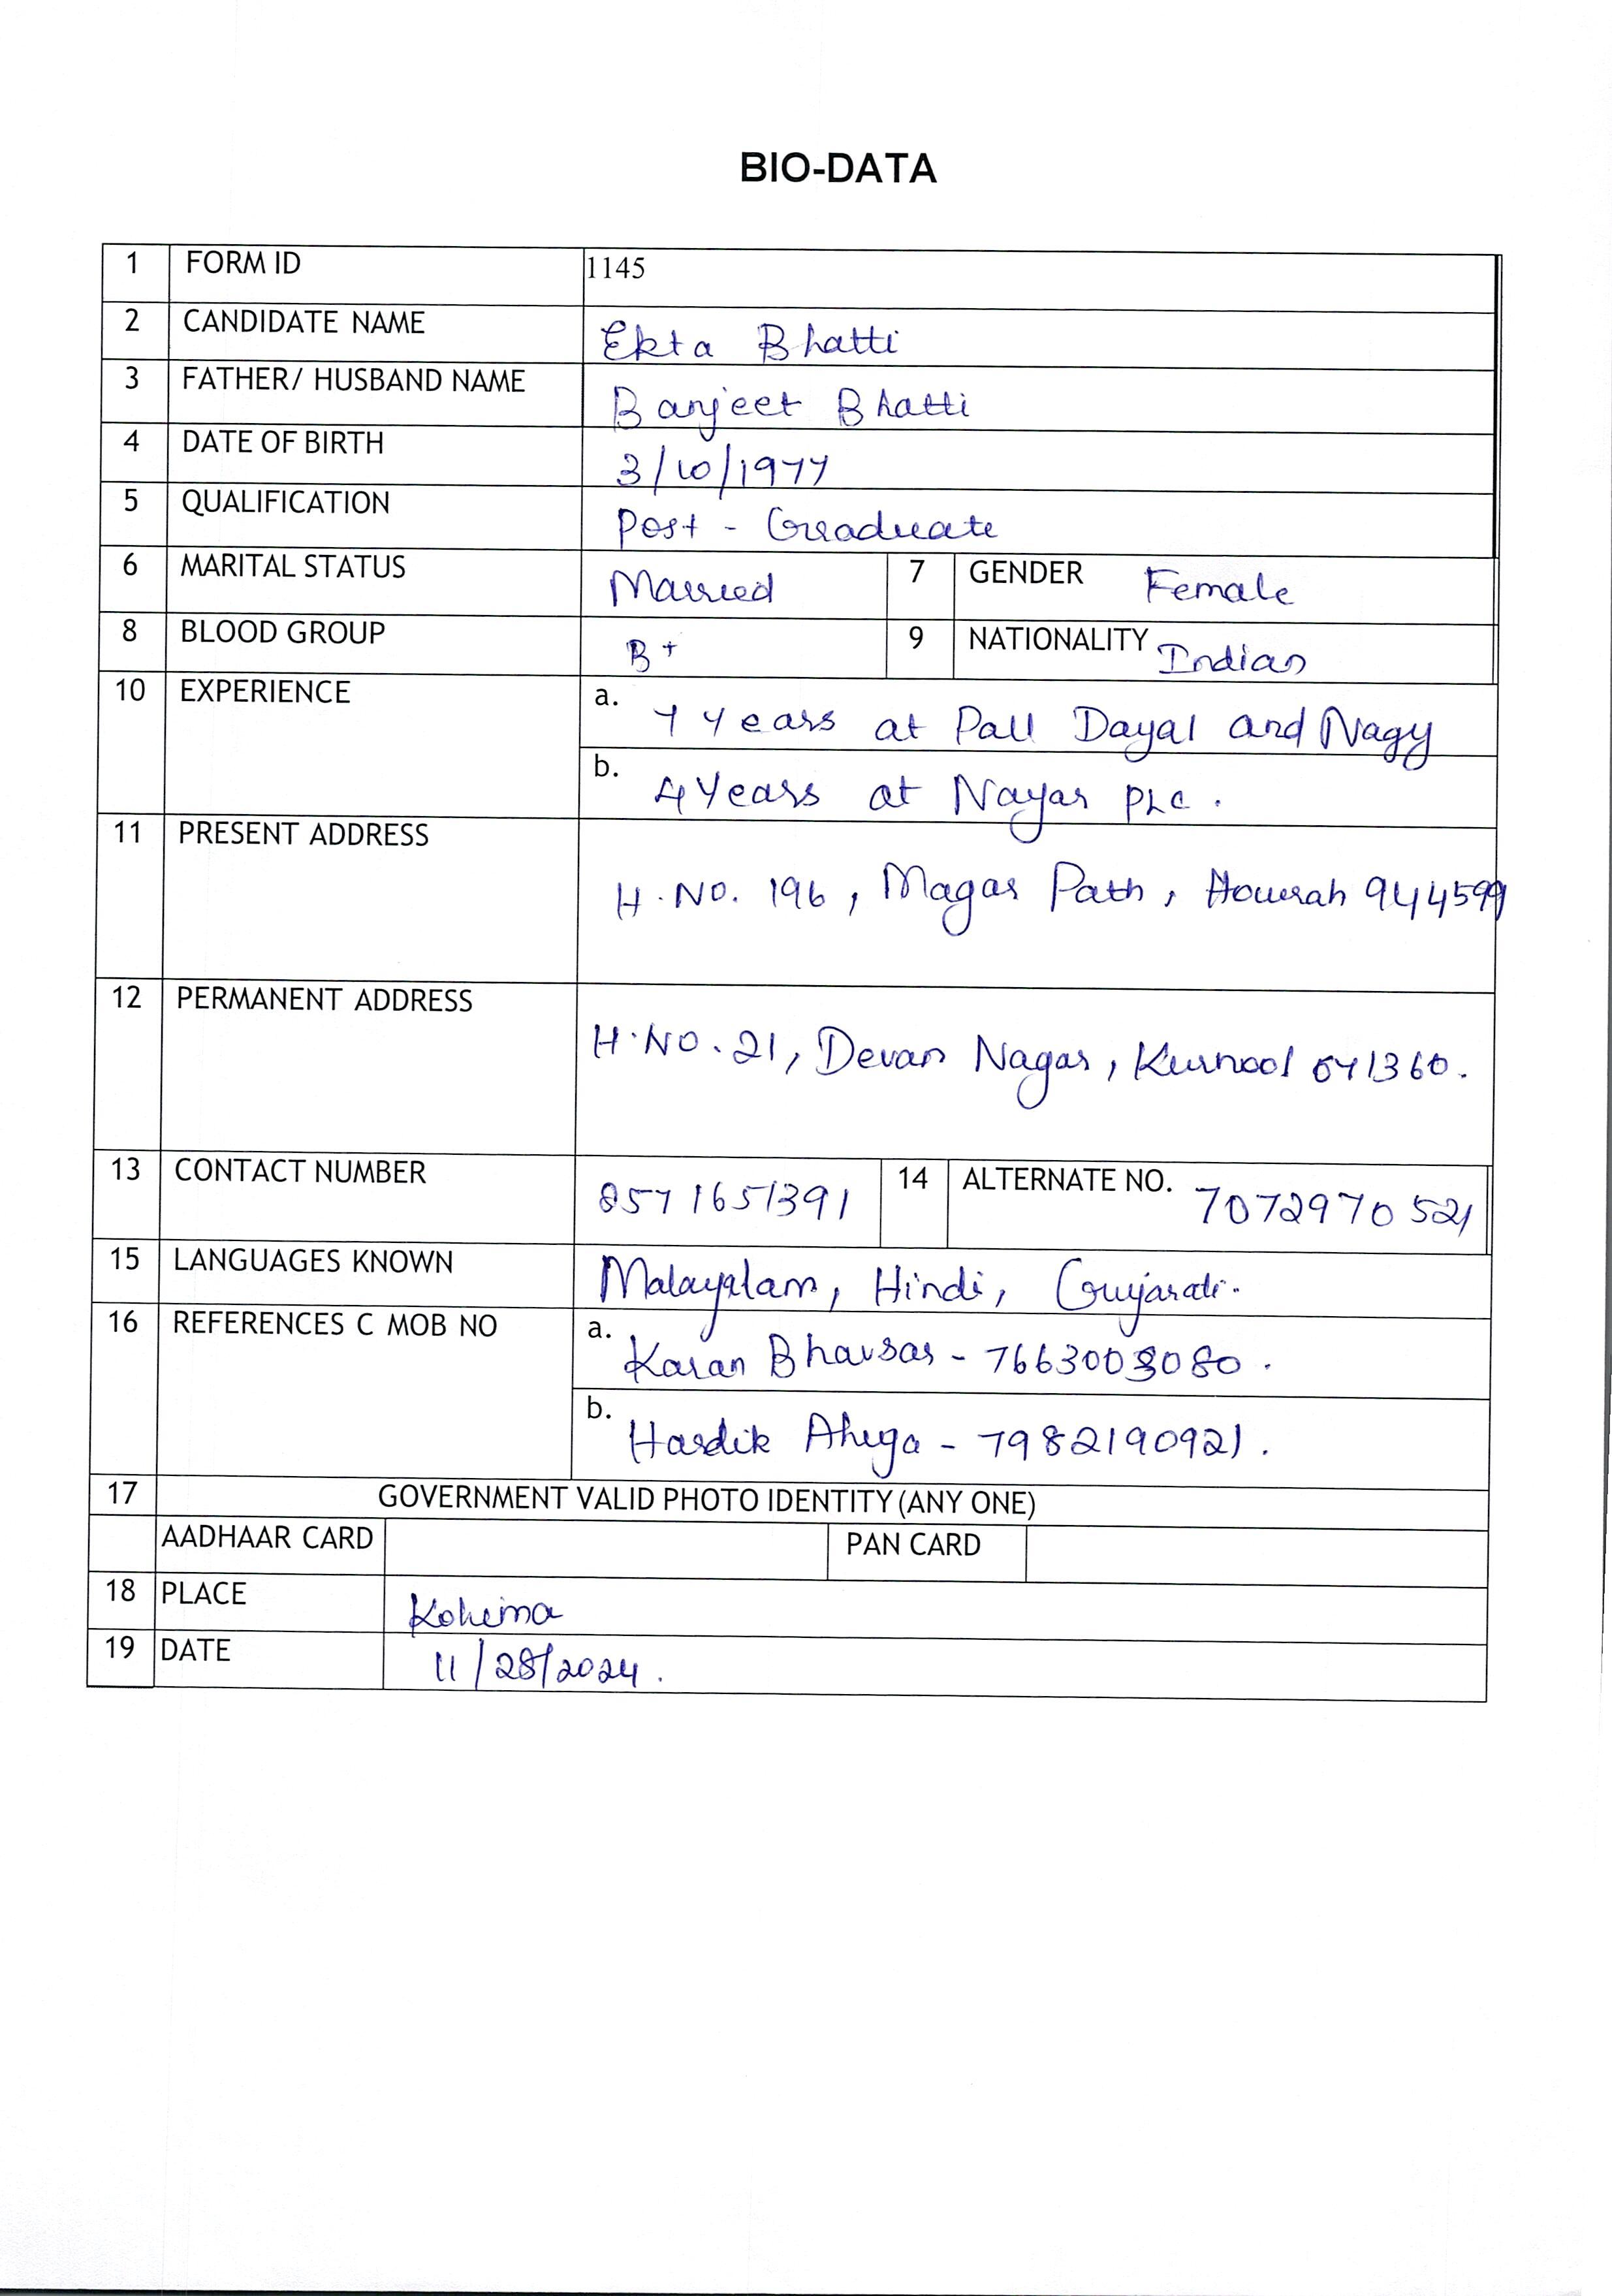 BIO-DATA
1 FORM ID 1145
2 CANDIDATE NAME Ekta Bhatti
3 FATHER/ HUSBAND NAME Banjeet Bhatti
4 DATE OF BIRTH 3/10/1977
5 QUALIFICATION Post - Graduate
6 MARITAL STATUS Married 7 GENDER Female
8 BLOOD GROUP B+ 9 NATIONALITY Indian
10 EXPERIENCE a. 7 Years at Pall Dayal and Nagy
b. 4 Years at Nayar PLC.
11 PRESENT ADDRESS H.NO. 196, Magar Path, Howrah 944599
12 PERMANENT ADDRESS H.NO. 21, Devan Nagar, Kurnool 071360.
13 CONTACT NUMBER 8571651391 14 ALTERNATE NO. 7072970521
15 LANGUAGES KNOWN Malayalam, Hindi, Gujarati.
16 REFERENCES C MOB NO a. Karan Bhavsar - 7663003080.
b. Hardik Ahuja - 7982190921.
17 GOVERNMENT VALID PHOTO IDENTITY (ANY ONE)
AADHAAR CARD PAN CARD
18 PLACE Kohima
19 DATE 11/28/2024.